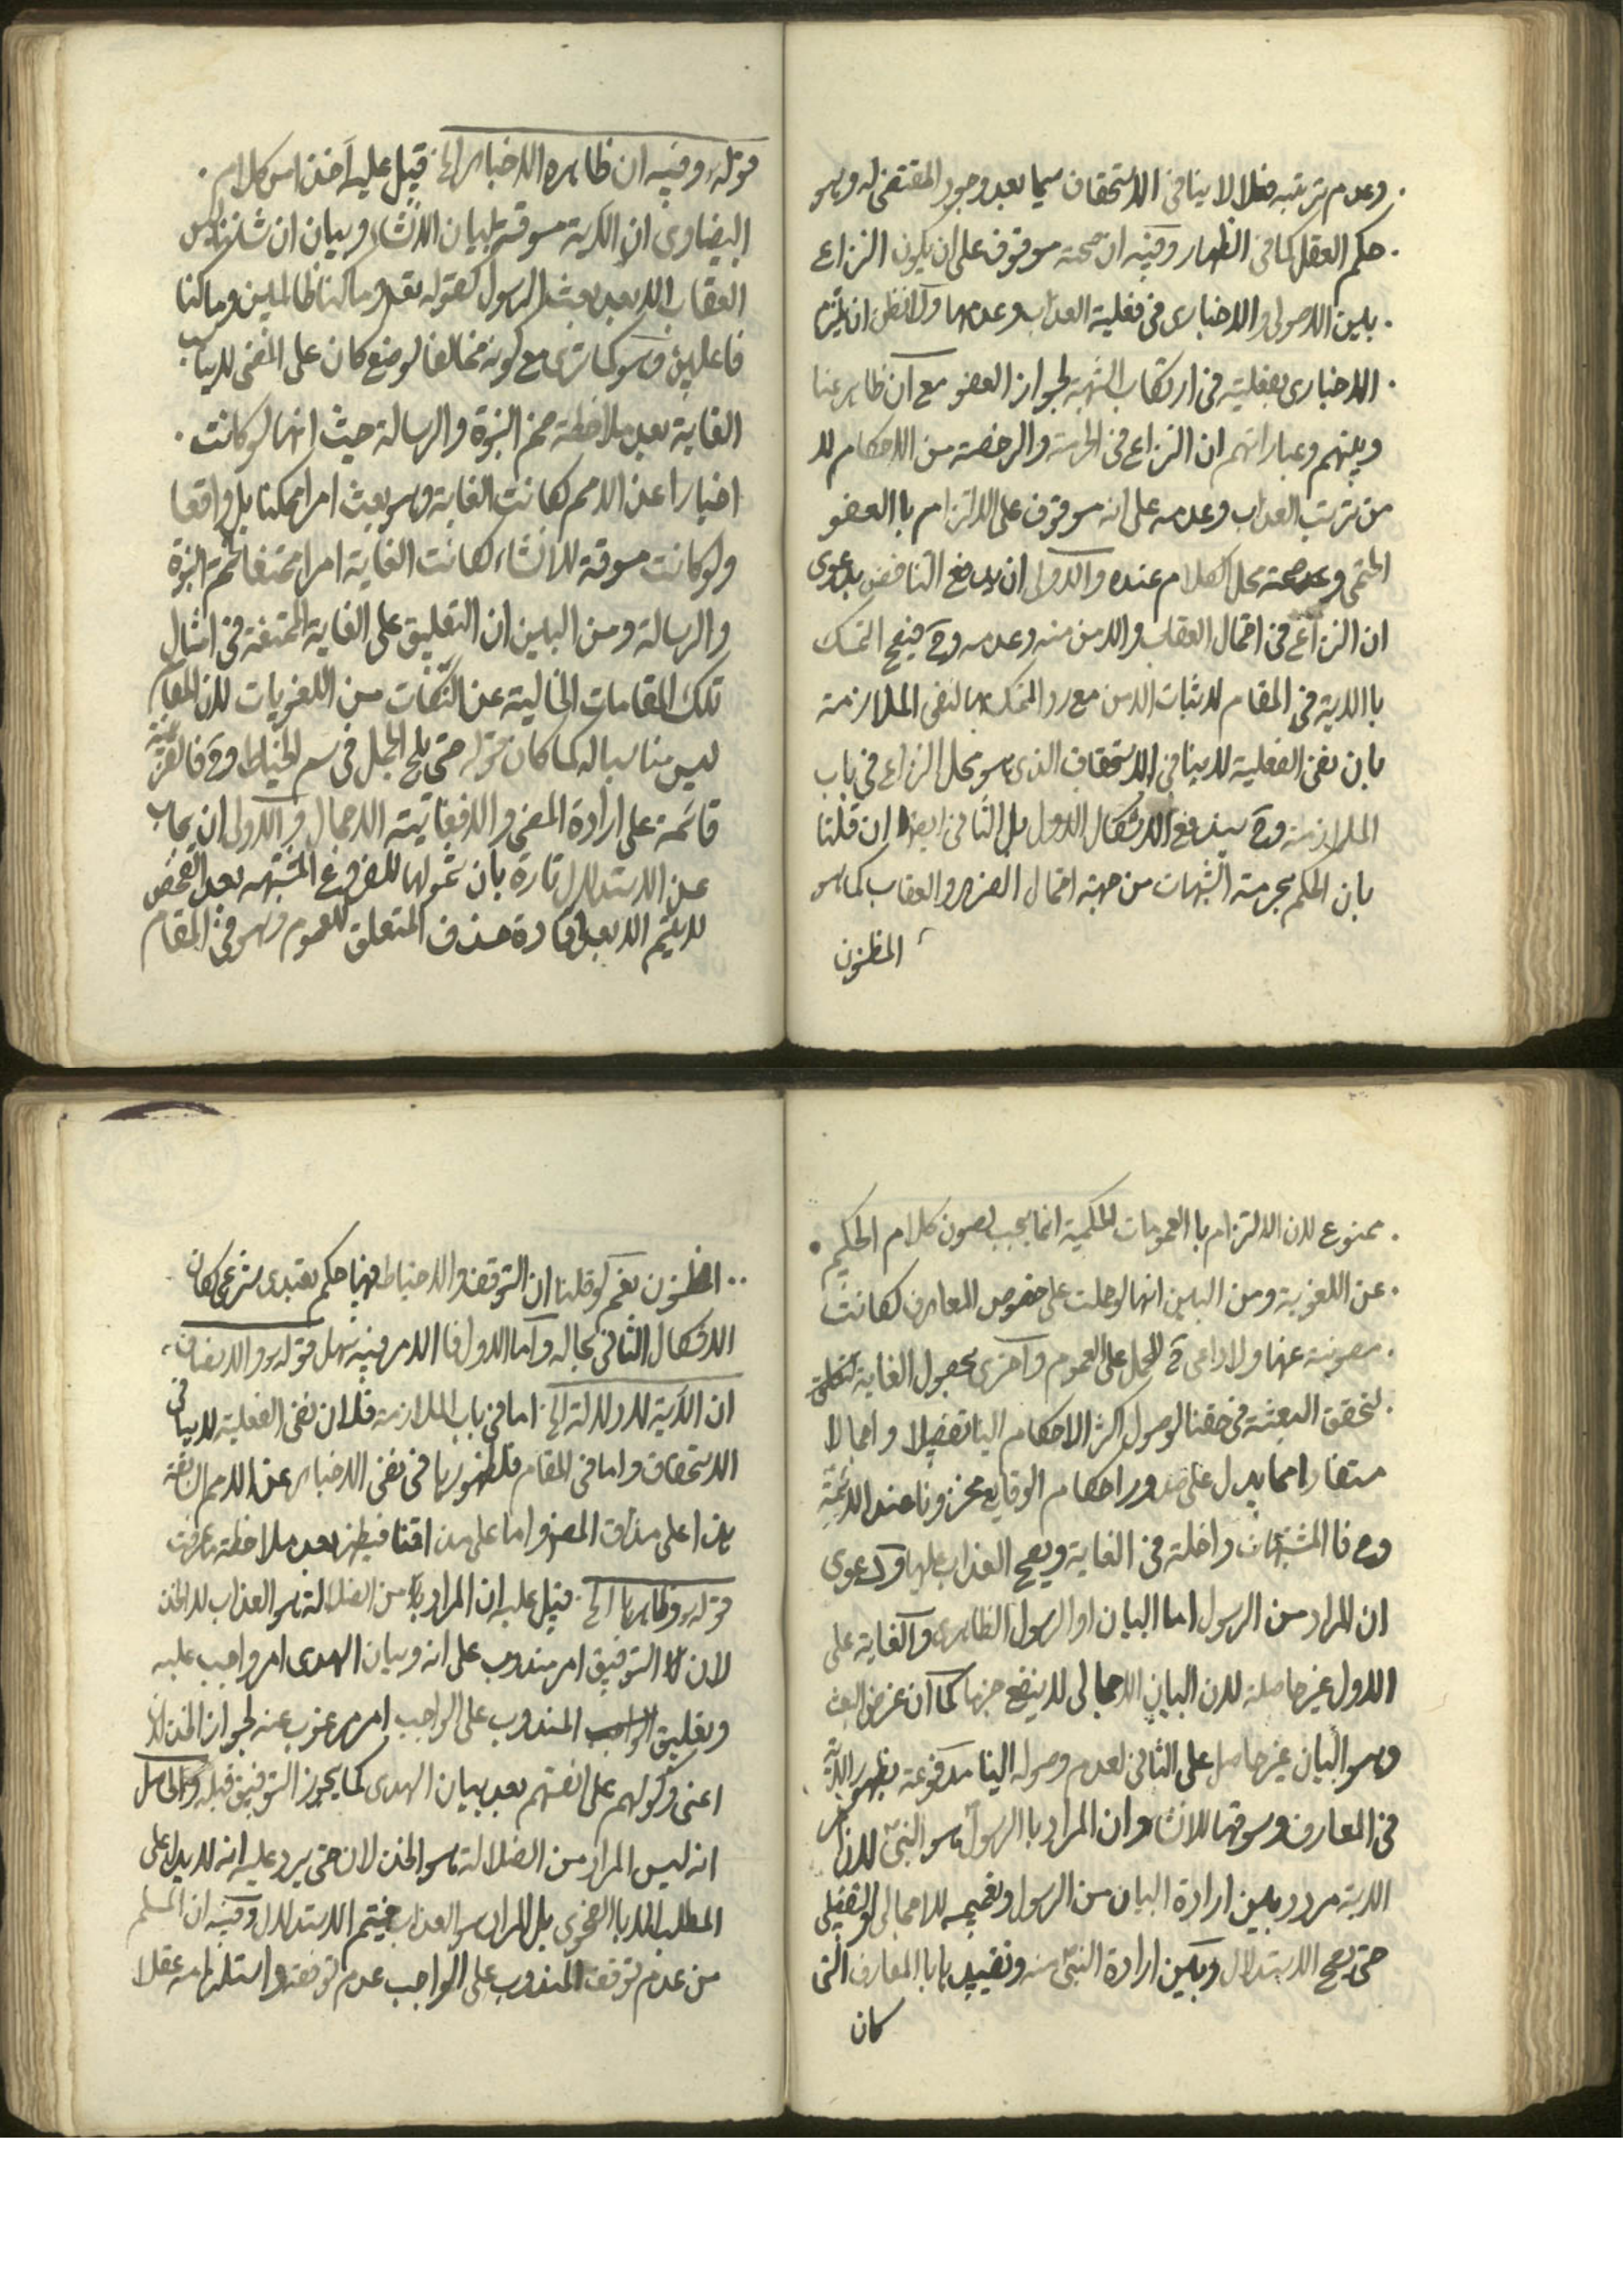 وعدم ترتبه فعلا لا ينافى الاستحقاق سيما بعد وجود المقتضى له وهو
حكم العقل كما فى الظهار وفيه ان صحته موقوف على ان يكون النزاع
بين الاصولى والاخبارى فى فعلية العذاب وعدمها ولا نظن ان يلتزم
الاخبارى بفعليته فى ارتكاب الشبهة لجواز العفو مع ان ظاهر عنا
وينهم وعباراتهم ان النزاع فى الحرمة والرخصة من الاحكام لا
من ترتب العذاب وعدمه على انه موقوف على الالتزام با العفو
الحتمى وعدم صحته محل الكلام عنده والاولى ان يدفع التناقض بدعوى
ان النزاع فى احتمال العقاب والامن منه وعدمه وح فيصح التمسك
با الاية فى المقام لاثبات الامن مع رد المتمسك بها لنفى الملازمة
بان نفى الفعلية لا ينافى الاستحقاق الذى هو محل النزاع فى باب
الملازمة وح يندفع الاشكال الاول بل الثانى ايضا ان قلنا
بان الحكم بحرمة الشبهات من جهة احتمال الضرر والعقاب كما هو
المظنون
قوله وفيه ان ظاهره الاخبار الخ قيل عليه آخذا من كلام
البيضاوى ان الكرية مسوقة لبيان الانشاء وبيان ان شاننا ليس
العقاب الا بعد بعث الرسول كقوله تعه وما كنا ظالمين وما كنا
فاعلين وهو كما ترى مع كونه مخالفا لوضع كان على المضى لا يناسب
الغاية بعد ملاحظة ختم النبوة والرسالة حيث انها لو كانت
اخبارا عن الامم كانت الغاية وهو بعث امرا ممكنا بل واقعا
ولو كانت مسوقة للانشاء كانت الغاية امرا ممتنعا لختم النبوة
والرسالة ومن البين ان التعليق على الغاية الممتنعة فى امثال
تلك المقامات الخالية عن النكات من اللغويات لان المقام
ليس مناسبا له كما كان قوله حتى يلج الجمل فى سم الخياط وح فا القرينة
قائمة على ارادة المضى والافغايته الاجمال والاولى ان يجاب
عن الاستدلال تارة بان شمولها للفروع المشتبهه بعد الفحص
لا يتم الا بعد افادة حذف المتعلق للعموم وهو فى المقام
ممنوع لان الالتزام با العمومات الحكمية انما يجب لصون كلام الحكيم
عن اللغوية ومن البين انها لو حملت على خصوص المعارف كانت
مصونة عنها ولا داعى ح للحمل على العموم واخرى بحصول الغاية
لتحقق البعثة فى حقنا لوصول اكثر الاحكام الينا تفصيلا واجمالا
مستفادا مما يدل على صدور احكام الوقايع مخزونا عند الائمة
وح فا المشتبهات داخلة فى الغاية ويصح العذاب عليها ودعوى
ان المراد من الرسول اما البيان او الرسول الظاهرى والغاية على
الاول غير حاصلة لان البيان الاجمالى لا ينفع جزما كما ان غرض البعث
وهو البيان غير حاصل على الثانى لعدم وصوله الينا مدفوعة بظهور الاية
فى المعارف وسوقها للانشاء وان المراد با الرسول هو النبى لان امر
الاية مردد بين ارادة البيان من الرسول وتعميمه للاجمالى والتفصيلى
حتى يصح الاستدلال وبين ارادة النبى منه وتقييدها با المعارف التى
كان
المظنون نعم لو قلنا ان التوقف والاحتياط فيها حكم تعبدى شرعى كان
الاشكال الثانى بحاله واما الاول فا الامر فيه سهل قوله والانصاف
ان الآية لا دلالة الخ اما فى باب الملازمة فلان نفى الفعلية لا ينافى
الاستحقاق واما فى المقام فلظهورها فى نفى الاخبار عن الامم السابقة
هذا على مذاق المصنف واما على مذاقنا فيظهر بعد ملاحظة ما عرفت
قوله وظاهرها الخ قيل عليه ان المراد من الضلالة هو العذاب لا الخذ
لان التوفيق امر مندوب على انه وبيان الهدى امر واجب عليه
وتعليق المندوب على الواجب امر مرغوب عنه لجواز الخذلان
اعنى وكولهم على انفسهم بعد بيان الهدى كما يجوز التوفيق قبله والحاصل
انه ليس المراد من الضلالة هو الخذلان حتى يرد عليه انه لا يدل على
المطلب الا با الفحوى بل المراد هو العذاب فيتم الاستدلال وفيه ان المسلم
من عدم توقف المندوب على الواجب عدم توقفه واستلزامه عقلا